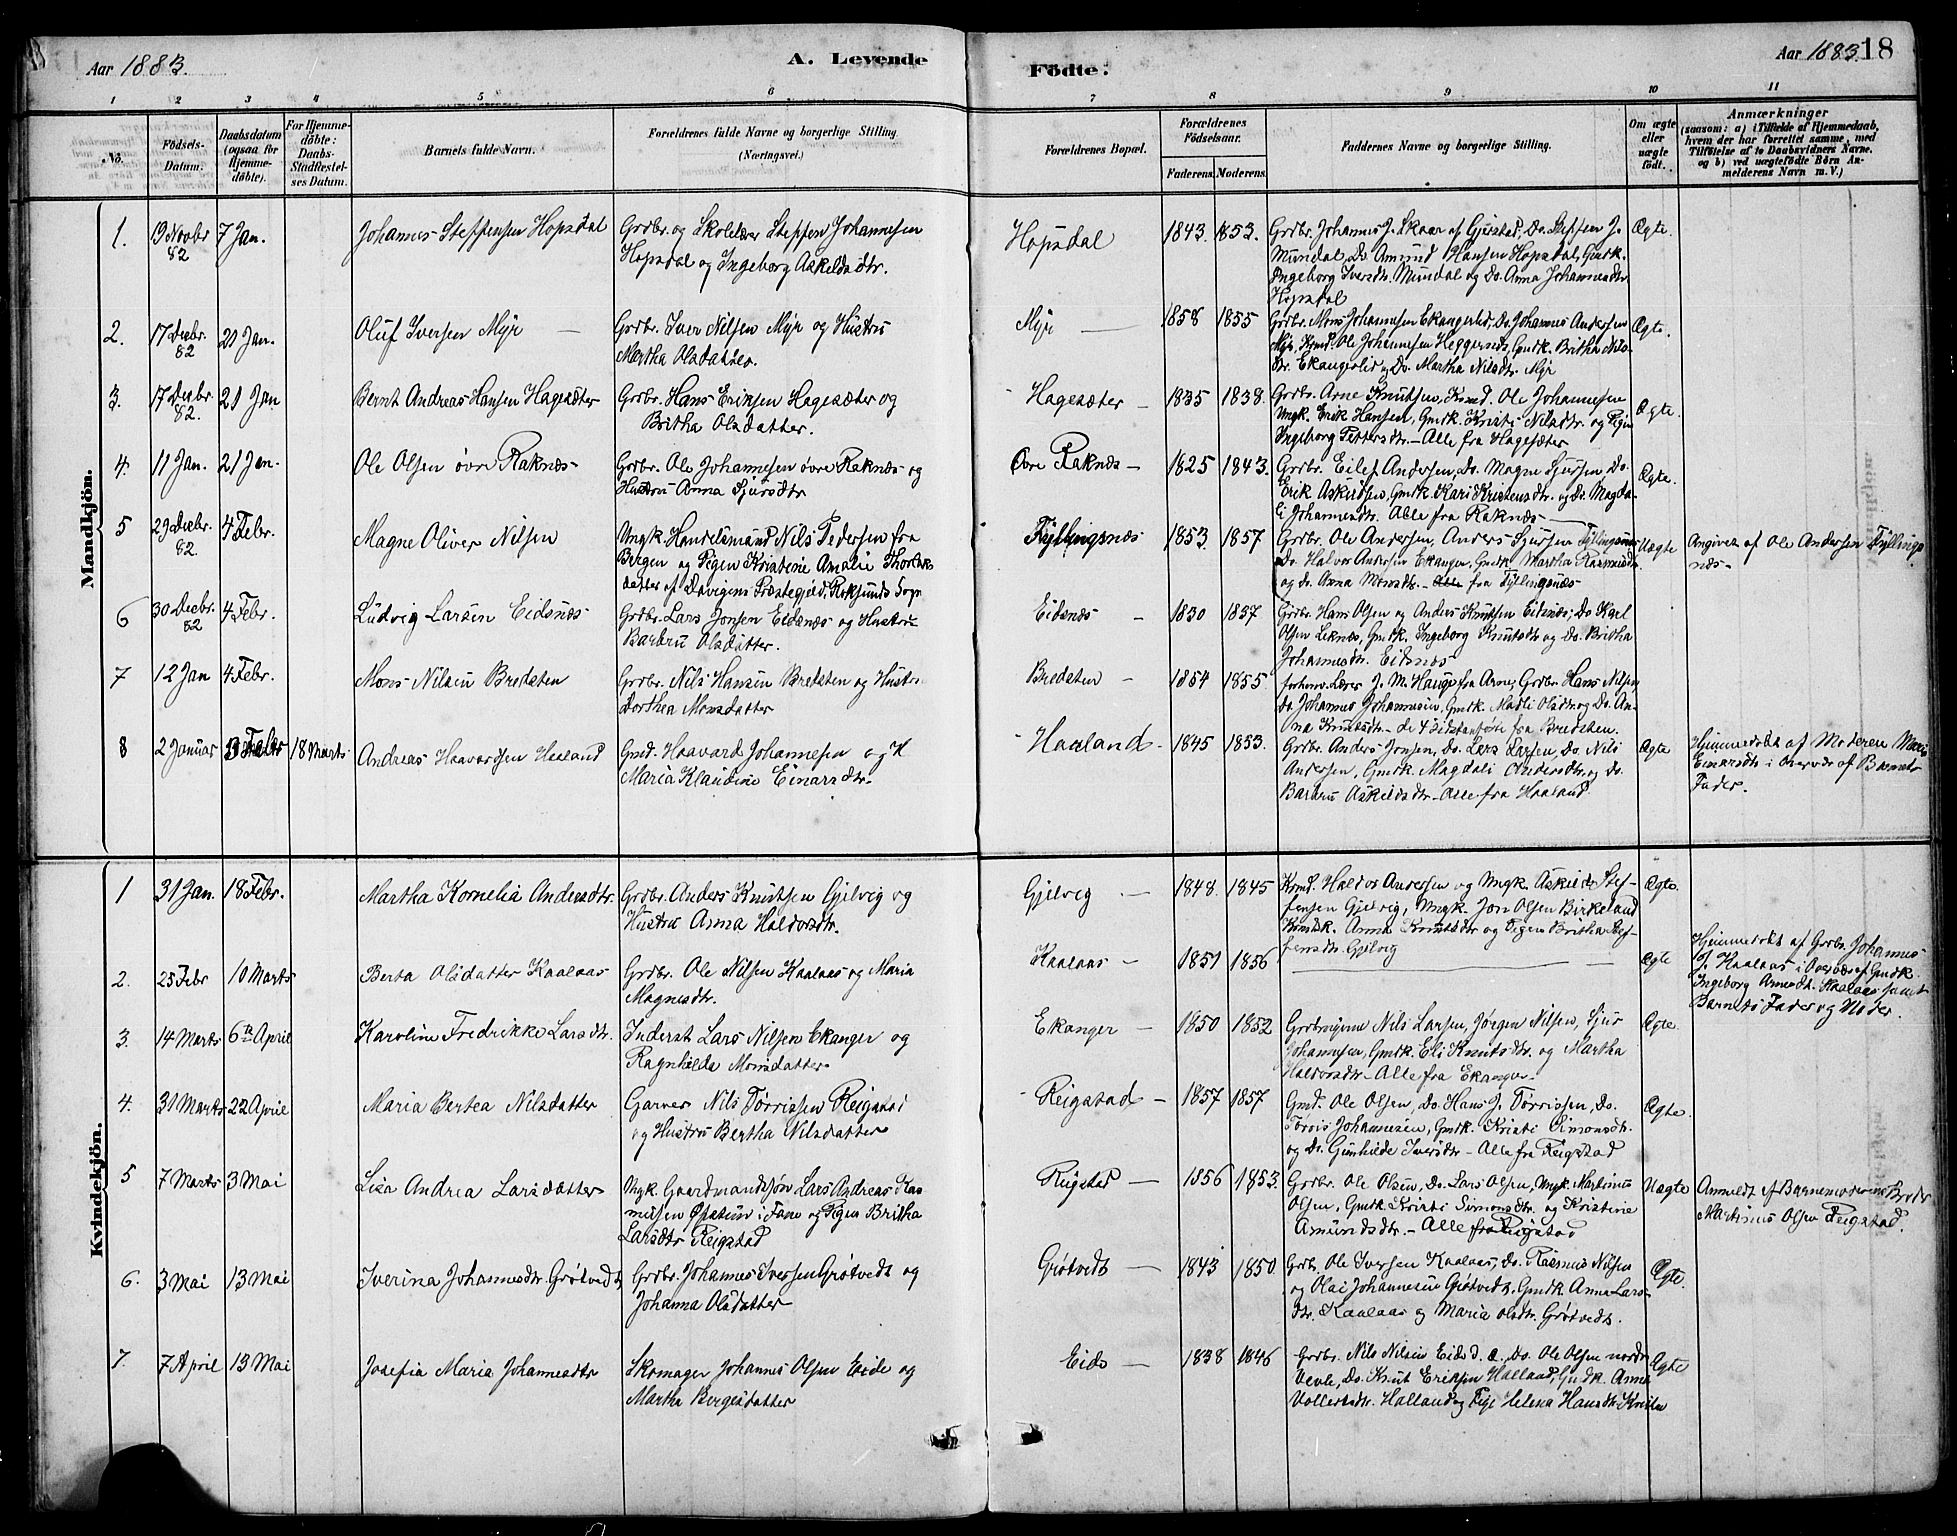 Aar 1883.
A. Levende
Födte.
Aar 1883. 18
1 2 3 4 5 6 7 8 9 10 11
No.
Födsels-Datum.
Daabsdatum (ogsaa for Hjemme-döbte).
For Hjemme-döbte: Daabs-Stadfæstel-ses Datum.
Barnets fulde Navn.
Forældrenes fulde Navne og borgerlige Stilling.
(Næringsvei.)
Forældrenes Bopæl.
Forældrenes Födselsaar.
Faderens. Moderens.
Faddernes Navne og borgerlige Stilling.
Om ægte eller uægte födt.
Anmærkninger
(saasom: a) i Tilfælde af Hjemmedaab, hvem der har forrettet samme, med Tilföielse af to Daabsvidners Navne, og b) ved uægtefödte Börn Anmelderens Navn m. V.)
Mandkjön.
1. 19 Novbr 82 7 Jan.
Johannes Steffensen Hopsdal
Grdbr. og Skolelærer Steffen Johannesen
Hopsdal og Ingeborg Askeldsdtr.
Hopsdal 1843. 1853.
Grdbr. Johannes J. Skaar af Gjerstad, Do. Steffen J.
Mundal, Do. Amund Hansen Hopsdal, Gmdk.
Ingeborg Iversdtr. Mundal og Do. Anna Johannesdtr
Hopsdal
Ægte.
2. 17 Decbr. 82 21 Jan.
Oluf Iversen Myr
Grdbr. Iver Nilsen Myr og Hustru
Martha Olsdatter.
Myr 1858 1855
Grdbr. Mons Johannesen Ekangerlid, Do. Johannes Andersen
Myr, Kmd. Ole Johannesen Heggernæs, Gmdk. Britha Nils-
dtr. Ekangerlid og Do. Martha Nilsdtr. Myr
Ægte.
3. 17 Decbr 82. 21 Jan
Bernt Andreas Hansen Hagesæter
Grdbr. Hans Eriksen Hagesæter og
Britha Olsdatter.
Hagesæter 1835 1838.
Grdbr. Arne Knutsen, Kmd. Ole Johannesen
Ungk. Erik Hansen, Gmdk. Kristi Nilsdtr. og Pigen
Ingeborg Pettersdtr. - Alle fra Hagesæter
Ægte.
4. 11 Jan. 21 Jan.
Ole Olsen övre Raknæs
Grdbr. Ole Johannesen övre Raknæs og
Hustru Anna Sjursdtr
Övre Raknæs 1825 1843.
Grdbr. Eilef Andersen, Do. Magne Sjursen, Do.
Erik Askildsen, Gmdk. Kari Kristensdtr. og Do. Magda-
li Johannesdtr. Alle fra Raknæs
Ægte.
5 29 Decbr. 82 4 Febr.
Magne Oliver Nilsen
Ungk. Handelsmand Nils Pedersen fra
Bergen og Pigen Kristine Amalie
datter af Præstegjeld, Sogn
Fyllingsnæs 1853. 1857
Grdbr. Ole Andersen, Anders Sjursen Fyllingsnæs
Do. Halvor Andersen Ekanger, Gmdk. Martha Rasmusdtr.
og do. Anna Monsdtr. Alle fra Fyllingsnæs
Uægte
Angivet af Ole Andersen Fyllings
næs
6 30 Decbr. 82 4 Febr.
Ludvig Larsen Eidsnæs
Grdbr. Lars Jonsen Eidsnæs og Hustru
Barbru Olsdatter.
Eidsnæs 1830 1857.
Grdbr. Hans Olsen og Anders Knutsen Eidsnæs, Do Karl
Olsen Leknæs, Gmdk. Ingeborg Knutsdtr og Do. Britha
Johannesdtr. Eidsnæs
7 12 Jan 4 Febr.
Mons Nilsen Bredsten
Grdbr. Nils Hansen Bredsten og Hustru
Dorthea Monsdatter
Bredsten 1854 1855
Lærer J. M. Hauge fra Arne, Grdbr. Hans Nilsen,
Do. Johannes Johannesen, Gmdk. Madli Olsdtr. og Do. An-
na Knutsdtr. de 4 Sidstanførte fra Bredsten.
8 2 Januar Febr 18 Marts
Andreas Haavardsen Haaland
Gmd. Haavard Johannesen og H
Maria Klaudine Einarsdtr.
Haaland 1845 1853.
Grdbr. Anders Jonsen, Do. Lars Larsen, Do. Nils
Andersen, Gmdk. Magdali Andersdtr. og do.
Barbru Askildsdtr. - Alle fra Haaland.
Ægte
Hjemmedøbt af Moderen Maria
Einarsdtr i Overvær af Barnets
Fader.
Kvindekjön.
1 31 Jan. 18 Febr.
Martha Kornelia Andersdtr
Grdbr. Anders Knutsen Gjelvig og
Hustru Anna Haldorsdtr.
Gjelvig 1848. 1845
Kmd. Haldor Andersen og Ungk. Askild Stef-
fensen Gjelvig, Ungk. Jon Olsen Birkeland
Kmdk. Anna Knutsdtr og Pigen Britha Stef-
fensdtr. Gjelvig
Ægte.
2. 25 Febr 10 Marts
Berta Olsdatter Kaalaas
Grdbr. Ole Nilsen Kaalaas og Maria
Magnesdtr.
Kaalaas 1851 1856
Ægte
Hjemmedøbt af Grdbr. Johannes
J. Kaalaas i Overvær af Gmdk.
Ingeborg Arnesdtr. Kaalaas samt
Barnets Fader og Moder.
3. 14 Marts 6te April
Karoline Fredrikke Larsdtr.
Inderst Lars Nilsen Ekanger og
Ragnhilda Monsdatter
Ekanger 1850 1852
Nils Larsen, Jørgen Nilsen, Sjur
Johannesen, Gmdk. Eli Knutsdtr. og Martha
Haldorsdtr. - Alle fra Ekanger.
Ægte.
4. 31 Marts 22 April
Maria Bertea Nilsdatter
Garver Nils Tørrissen Reigstad
og Hustru Bertha Nilsdatter
Reigstad 1857 1857
Gmd. Ole Olsen, Do. Hans J. Tørrissen, Do.
Tørris Johannesen, Gmdk. Kristi Simonsdtr.
og Do. Gunhilde Iversdtr - Alle fra Reigstad
Ægte.
5 7 Marts 3 Mai
Lisa Andrea Larsdatter
Ungk. Gaardmandssøn Lars Andreas Ras-
musen i Fane og Pigen Britha
Larsdtr Reigstad
Reigstad 1856 1853.
Grdbr. Ole Olsen, Do. Lars Olsen, Ungk. Martinus
Olsen, Gmdk. Kristi Simonsdtr. og Kristine
Amundsdtr. - Alle fra Reigstad
Uægte
Anmeldt af Barnemoderens Broder
Martinus Olsen Reigstad.
6. 3 Mai 13 Mai
Iverina Johannesdtr. Grøtvedt
Grdbr. Johannes Iversen Grøtvedt og
Johanna Olsdatter
Grøtvedt 1843 1850
Grdb. Ole Iversen Kaalaas, Do. Rasmus Nilsen
og Olai Johannesen Grøtvedt, Gmdk. Anna Lars-
dtr. Kaalaas og Maria Olsdtr. Grøtvedt.
Ægte.
7. 7 April 13 Mai
Josefia Maria Johannesdtr
Skomager Johannes Olsen Eide og
Martha Børgesdatter
Eide 1838 1846
Grdbr. Nils Nilsen Eide, Do. Ole Olsen nordr
Vevle, Do. Knut Eriksen Halland, Gmdk. Anna
Vollertsdtr. Halland og Pige Helena Hansdtr.
Ægte